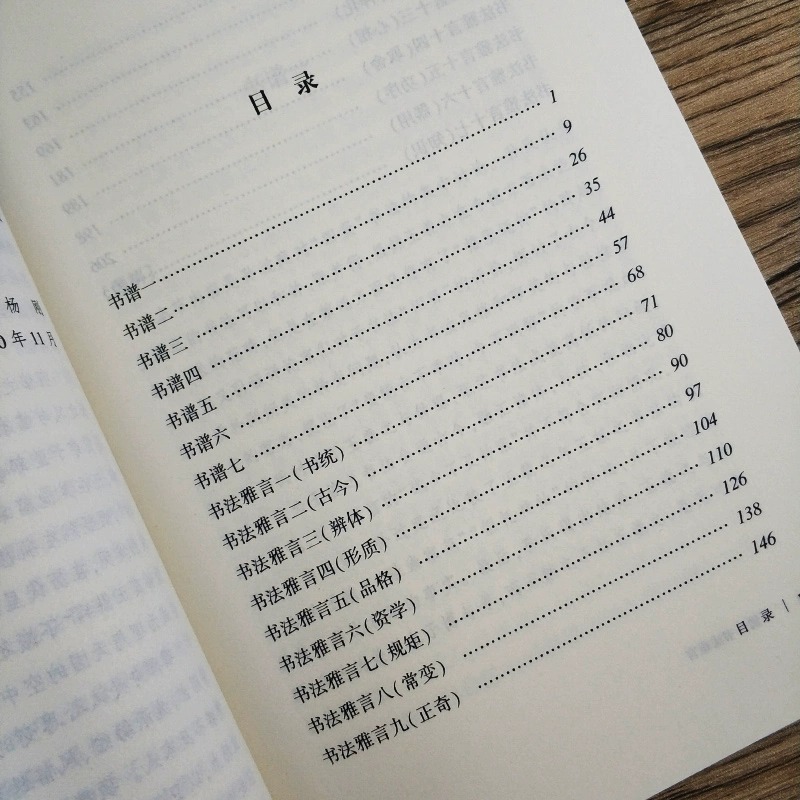 杨
0年11月
目 录
书谱一 1
书谱二 9
书谱三 26
书谱四 35
书谱五 44
书谱六 57
书谱七 68
书法雅言一(书统) 71
书法雅言二(古今) 80
书法雅言三(辨体) 90
书法雅言四(形质) 97
书法雅言五(品格) 104
书法雅言六(资学) 110
书法雅言七(规矩) 126
书法雅言八(常变) 138
书法雅言九(正奇) 146
目 录 |